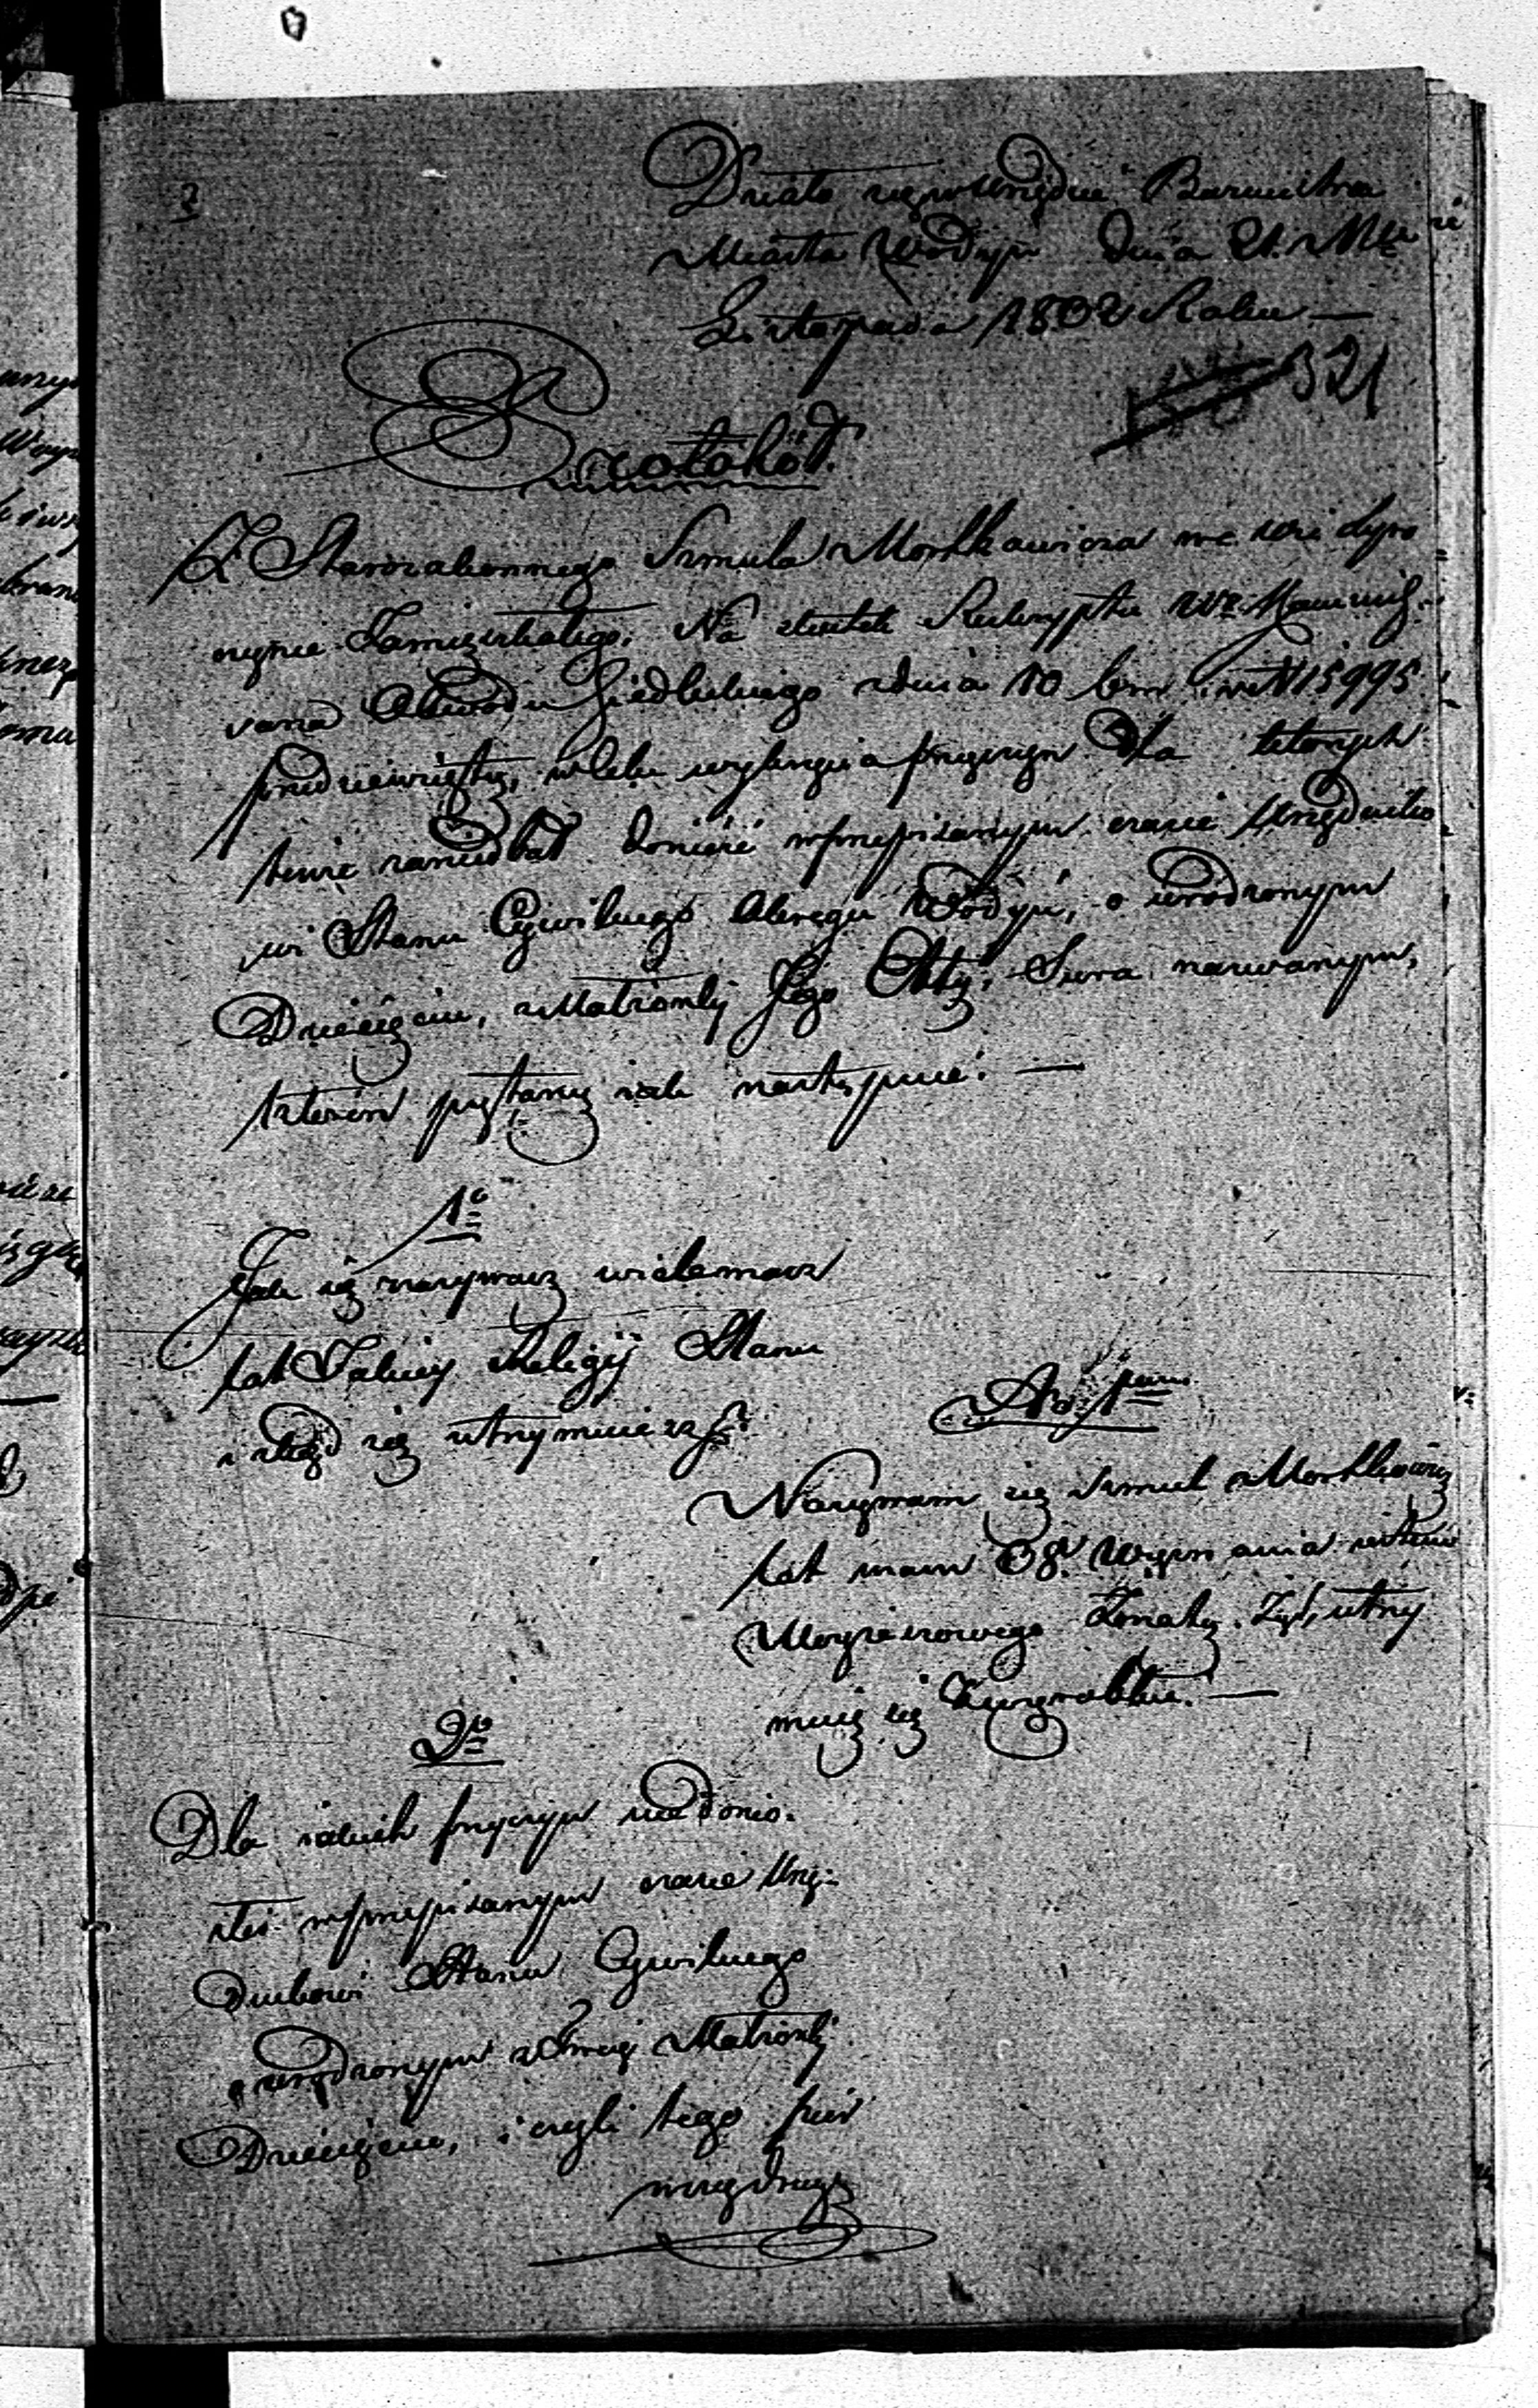 3
Działo się w Urzędzie Burmistrza
Miasta Wodyń dnia 21. Mca
Listopada Roku —
321
Protokół.
Z Starozakonnego Szmula Moszkowicza we wsi
Zamieszkałego. Na skutek Reskryptu
Obwodu Siedleckiego z dnia 10 bm N 15995
przedsięwzięty, w celu wyśledzenia przyczyn dla których
tenże zaniedbał donieść w przepisanym czasie Urzędniko
wi Stanu Cywilnego Okręgu Wodyń, o urodzonym
Dziecięciu, z Małżonki Jego Sura nazwanym,
pytany iak następuie. —
1o
Jak się nazywasz wiele masz
lat Jakiey Religij Stanu
i skąd się utrzymuiesz
Ad 1um
Nazywam się Szmul Moszkowicz
lat mam 38. Wyznania
Moyżeszowego Żonaty. Żyd, utrzy
muię się Z wyrobku. —
2o
Dla iakich przyczyn nie donio-
słeś w przepisanym czasie Urzę-
dnikowi Stanu Cywilnego
o urodzonym z Twey Małżonki
Dziecięciu, i czyli tego